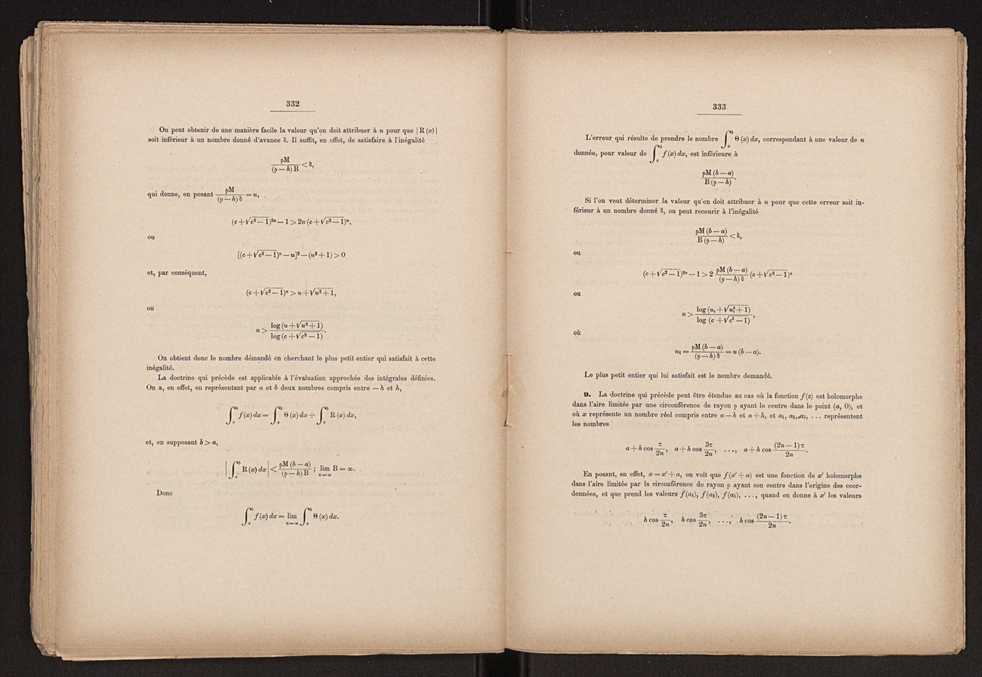 332
On peut obtenir de une manière facile la valeur qu'on doit attribuer à n pour que | R (x) |
soit inférieur à un nombre donné d'avance δ. Il suffit, en effet, de satisfaire à l'inégalité
ρM / (ρ — h) B < δ,
qui donne, en posant ρM / (ρ — h) δ = u,
(c + √c² — 1)²ⁿ — 1 > 2u (c + √c² — 1)ⁿ,
ou
[(c + √c² — 1)ⁿ — u]² — (u² + 1) > 0
et, par conséquent,
(c + √c² — 1)ⁿ > u + √u² + 1,
ou
n > log (u + √u² + 1) / log (c + √c² — 1).
On obtient donc le nombre démandé en cherchant le plus petit entier qui satisfait à cette
inégalité.
La doctrine qui précède est applicable à l'évaluation approchée des intégrales définies.
On a, en effet, en représentant par a et b deux nombres compris entre — h et h,
∫ f(x) dx = ∫ Θ (x) dx + ∫ R (x) dx,
et, en supposant b > a,
| ∫ R (x) dx | < ρM (b — a) / (ρ — h) B ; lim B = ∞.
n=∞
Donc
∫ f(x) dx = lim ∫ Θ (x) dx.
n=∞
333
L'erreur qui résulte de prendre le nombre ∫ Θ (x) dx, correspondant à une valeur de n
donnée, pour valeur de ∫ f(x) dx, est inférieure à
ρM (b — a) / B (ρ — h).
Si l'on veut déterminer la valeur qu'on doit attribuer à n pour que cette erreur soit in-
férieur à un nombre donné δ, on peut recourir à l'inégalité
ρM (b — a) / B (ρ — h) < δ,
ou
(c + √c² — 1)²ⁿ — 1 > 2 ρM (b — a) / (ρ — h) δ (c + √c² — 1)ⁿ
ou
n > log (u₁ + √u₁² + 1) / log (c + √c² — 1),
où
u₁ = ρM (b — a) / (ρ — h) δ = u (b — a).
Le plus petit entier qui lui satisfait est le nombre demandé.
La doctrine qui précède peut être étendue au cas où la fonction f(z) est holomorphe
dans l'aire limitée par une circonférence de rayon ρ ayant le centre dans le point (a, 0), et
où x représente un nombre réel compris entre a — h et a + h, et a₁, a₂, a₃, . . . représentent
les nombres
a + h cos π / 2n, a + h cos 3π / 2n, . . ., a + h cos (2n — 1) π / 2n.
En posant, en effet, x = x' + a, on voit que f(x' + a) est une fonction de x' holomorphe
dans l'aire limitée par la circonférence de rayon ρ ayant son centre dans l'origine des coor-
données, et que prend les valeurs f(a₁), f(a₂), f(a₃), . . ., quand on donne à x' les valeurs
h cos π / 2n, h cos 3π / 2n, . . ., h cos (2n — 1) π / 2n.